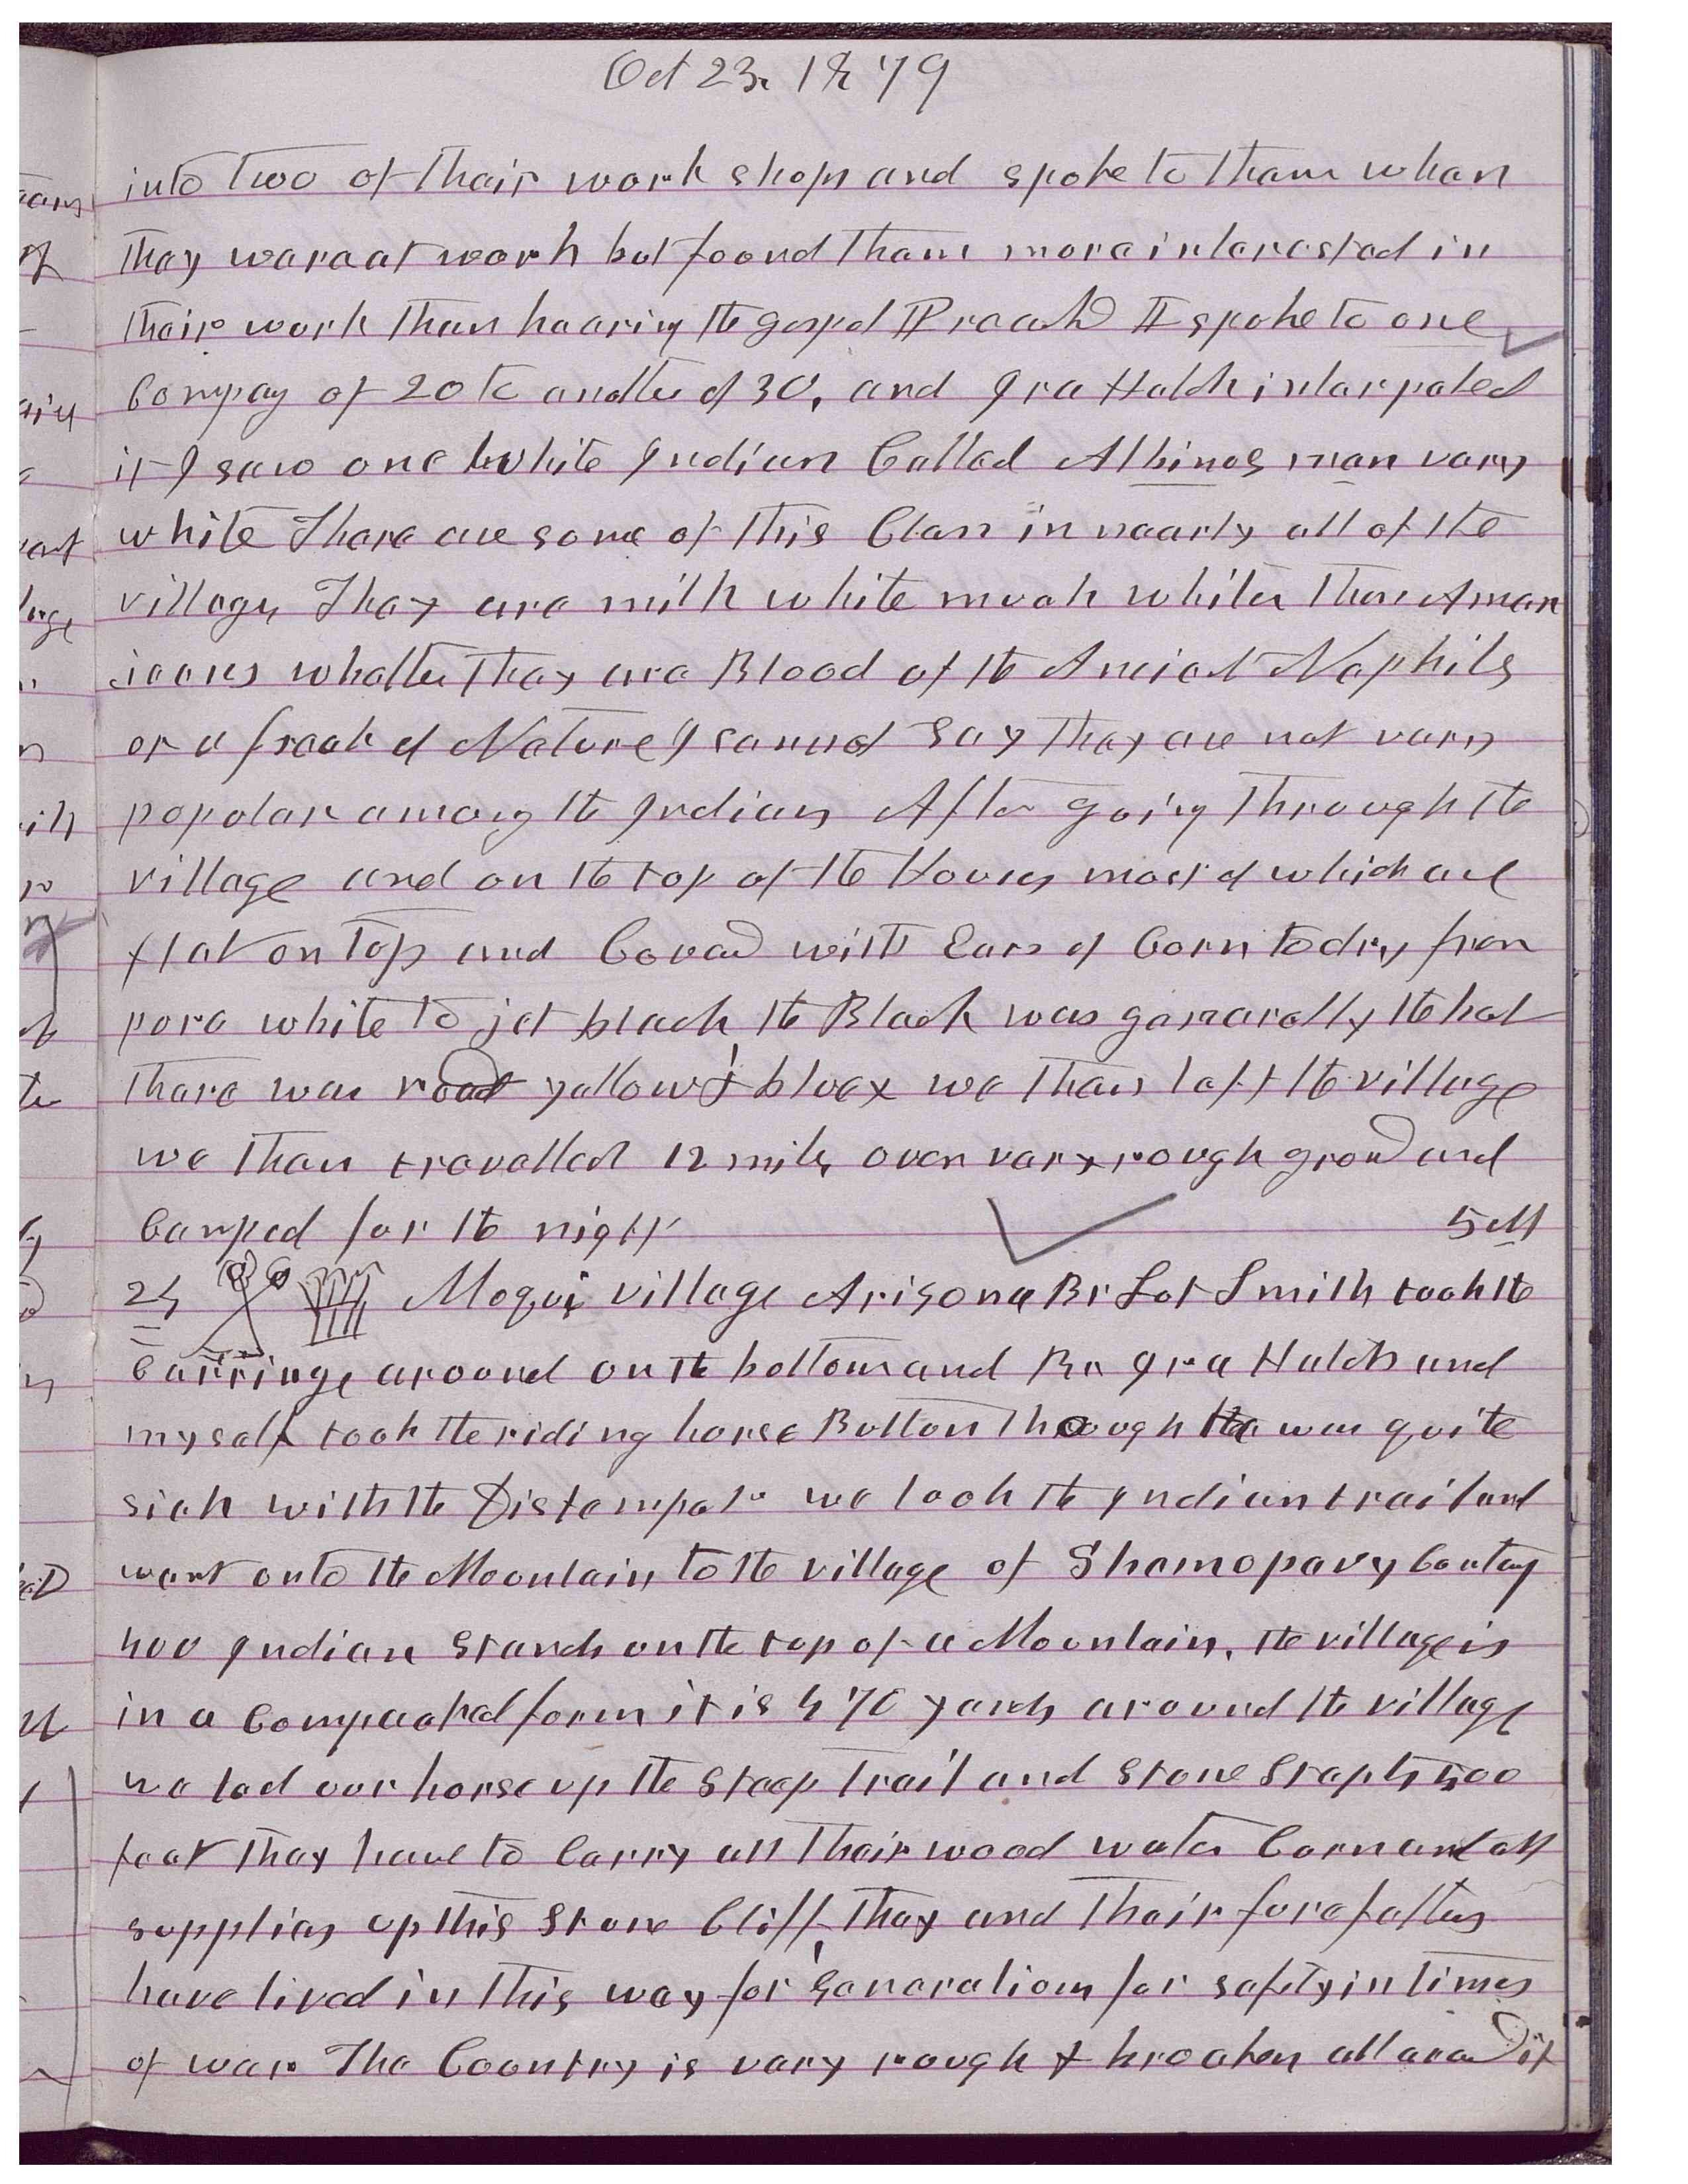 Oct 23. 1879
into two of thair work shops and spoke to tham whan
thay ware at work but found tham more intarested in
thair work than hearing the gospel Preachd I spoke to one
Compay of 20 to another of 30, and Ira Hatch intarpated
it I saw one white Indian Called Albinos man vary
white There are some of this Clan in nearly all of the
villages They are milk white much whiter than Amer
icans whather thay are Blood of the Anciat Nephits
or a freak of Nature I cannot say they are not vary
popular among the Indians After going through the
village and on the top of the Houses most of which are
flat on top and Coverd with Ears of Corn to dry from
pure white to jet black, the Black was genarally the hal
There was read yallow & bluey we than left the village
we than travelled 12 miles over vary rough ground and
Camped for the night 5 M
24 Moqui village Arisona Br Lot Smith took the
Carriage around on the bottom and Br Ira Hatch and
myself took the riding horse Button Though He was quite
sick with the Distemper we took the Indian trail and
went onto the Mountain to the village of Shamopavy Containg
400 Indians stands on the top of a Mountain, the village is
in a Compacted form it is 470 yards around the village
we led our horse up the steep trail and stone steps 500
feet They have to Carry all Thair wood water Corn and all
supplies up this stone Cliff, They and Thair forefathers
have lived in this way for Genarations for safety in times
of war. The Country is vary rough & broaken all around it